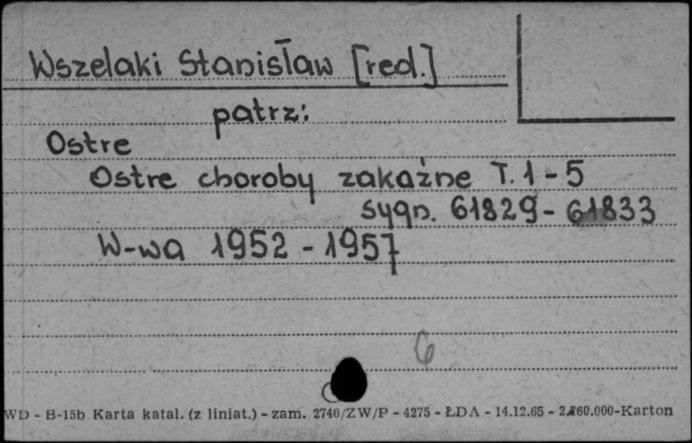 Wszelaki Stanisław [red.]
patrz:
Ostre
Ostre choroby zakaźne T. 1 - 5
sygn. 61829 - 61833
W-wa 1952 - 1957
6
WD - B-15b Karta katal. (z liniat.) - zam. 2740/ZW/P - 4275 - ŁDA - 14.12.65 - 2.860.000-Karton